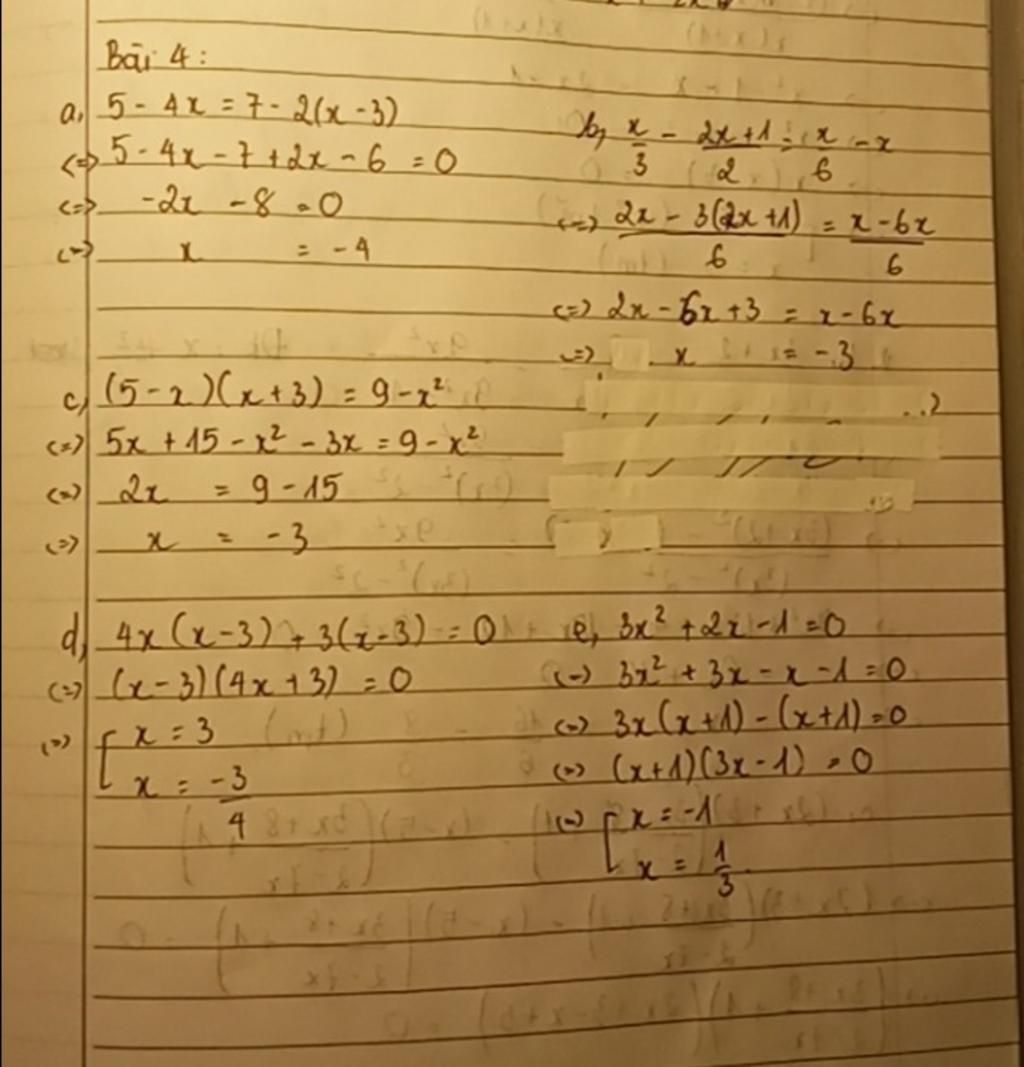 Bài 4:
a, 5 - 4x = 7 - 2(x - 3)
<=> 5 - 4x - 7 + 2x - 6 = 0
<=> -2x - 8 = 0
<=> x = -4
b, x/3 - (2x+1)/2 = x/6 - x
<=> (2x - 3(2x+1))/6 = (x - 6x)/6
<=> 2x - 6x + 3 = x - 6x
<=> x = -3
c, (5 - x)(x + 3) = 9 - x²
<=> 5x + 15 - x² - 3x = 9 - x²
<=> 2x = 9 - 15
<=> x = -3
d, 4x(x - 3) + 3(x - 3) = 0
<=> (x - 3)(4x + 3) = 0
<=> [ x = 3
x = -3/4
e, 3x² + 2x - 1 = 0
<=> 3x² + 3x - x - 1 = 0
<=> 3x(x + 1) - (x + 1) = 0
<=> (x + 1)(3x - 1) = 0
<=> [ x = -1
x = 1/3